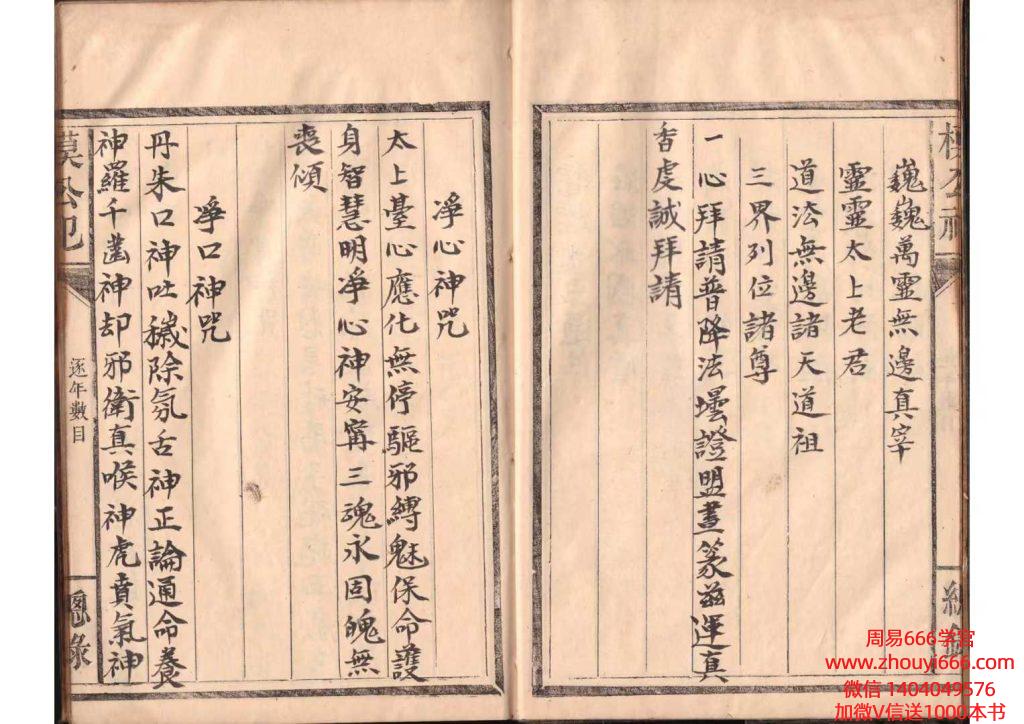 巍巍萬靈無邊真宰
靈靈太上老君
道法無邊諸天道祖
三界列位諸尊
一心拜請普降法壜證盟畫篆茲運真
香虔誠拜請
淨心神咒
太上臺心應化無停驅邪縛魅保命護
身智慧明凈心神安寗三魂永固魄無
喪傾
凈口神咒
丹朱口神吐穢除氛舌神正論通命養
神羅千齒神却邪衛真喉神虎賁氣神
逐年數目
總錄
周易666学宫
www.zhouyi666.com
微信 1404049576
加微V信送1000本书